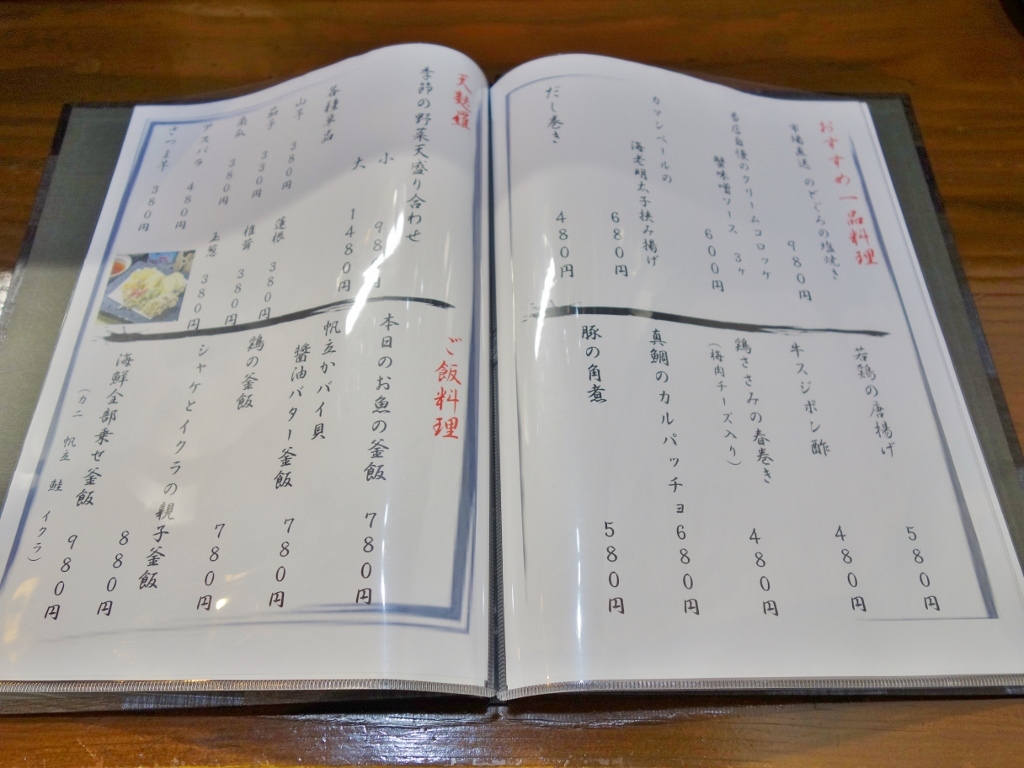 おすすめ一品料理
市場直送 のどぐろの塩焼き
980円
当店自慢のクリームコロッケ
蟹味噌ソース 3ヶ
600円
カマンベールの
海老明太子挟み揚げ
680円
だし巻き
480円
若鶏の唐揚げ
580円
牛スジポン酢
480円
鶏ささみの春巻き
(梅肉チーズ入り)
480円
真鯛のカルパッチョ
680円
豚の角煮
580円
天麩羅
季節の野菜天盛り合わせ
小 980円
大 1480円
各種単品
山芋 380円
蓮根 380円
茄子 330円
椎茸 380円
南瓜 380円
玉葱 380円
アスパラ 480円
さつま芋 380円
ご飯料理
本日のお魚の釜飯
780円
帆立かバイ貝
醤油バター釜飯
780円
鶏の釜飯
780円
シャケとイクラの親子釜飯
880円
海鮮全部乗せ釜飯
(カニ 帆立 鮭 イクラ)
980円